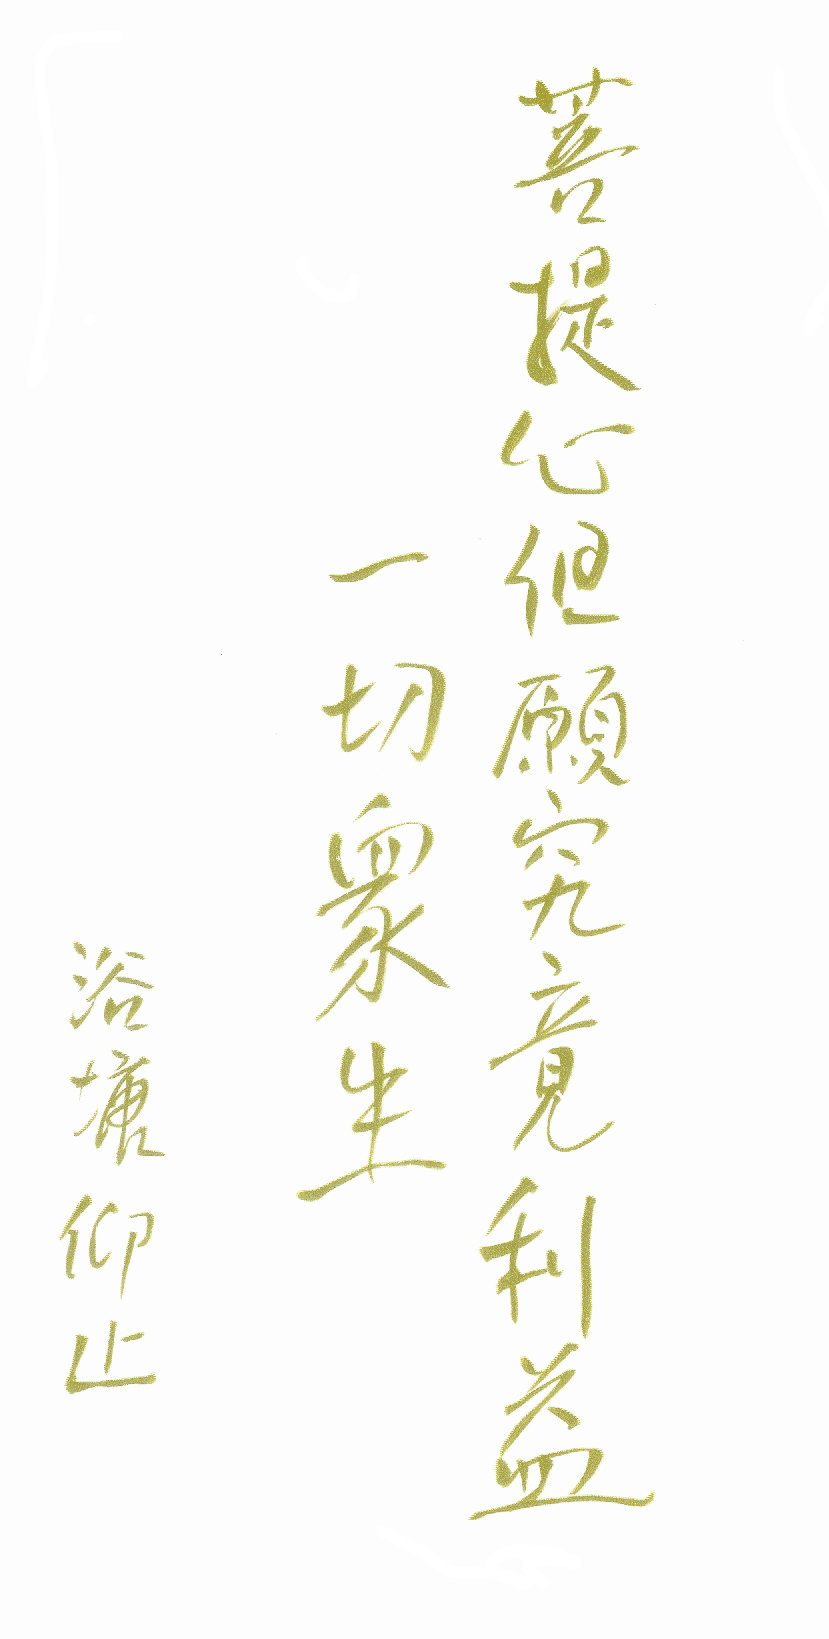 菩提心但願究竟利益
一切眾生
浴塘仰止